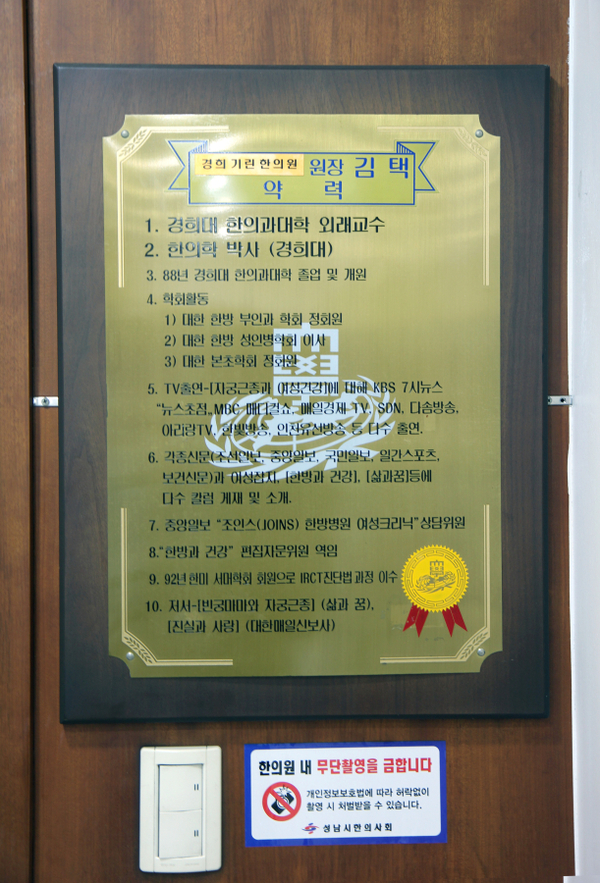 경희기린한의원 원장 김 택
약 력
1. 경희대 한의과대학 외래교수
2. 한의학 박사 (경희대)
3. 88년 경희대 한의과대학 졸업 및 개원
4. 학회활동
1) 대한 한방 부인과 학회 정회원
2) 대한 한방 성인병학회 이사
3) 대한 본초학회 정회원
5. TV출연-[자궁근종과 여성건강]에 대해 KBS 7시뉴스
"뉴스초점, MBC 메디컬쇼, 매일경제 TV, SDN, 다솜방송,
아리랑TV, 한빛방송, 인천유선방송 등 다수 출연.
6. 각종신문(조선일보, 중앙일보, 국민일보, 일간스포츠,
보건신문)과 여성잡지, [한방과 건강], [삶과꿈]등에
다수 컬럼 게재 및 소개.
7. 중앙일보 "조인스(JOINS) 한방병원 여성크리닉"상담위원
8. "한방과 건강" 편집자문위원 역임
9. 92년 한미 서머학회 회원으로 IRCT진단법 과정 이수
10. 저서-[반궁마마와 자궁근종] (삶과 꿈),
[진실과 사랑] (대한매일신보사)
한의원 내 무단촬영을 금합니다
개인정보보호법에 따라 허락없이
촬영 시 처벌받을 수 있습니다.
성남시한의사회